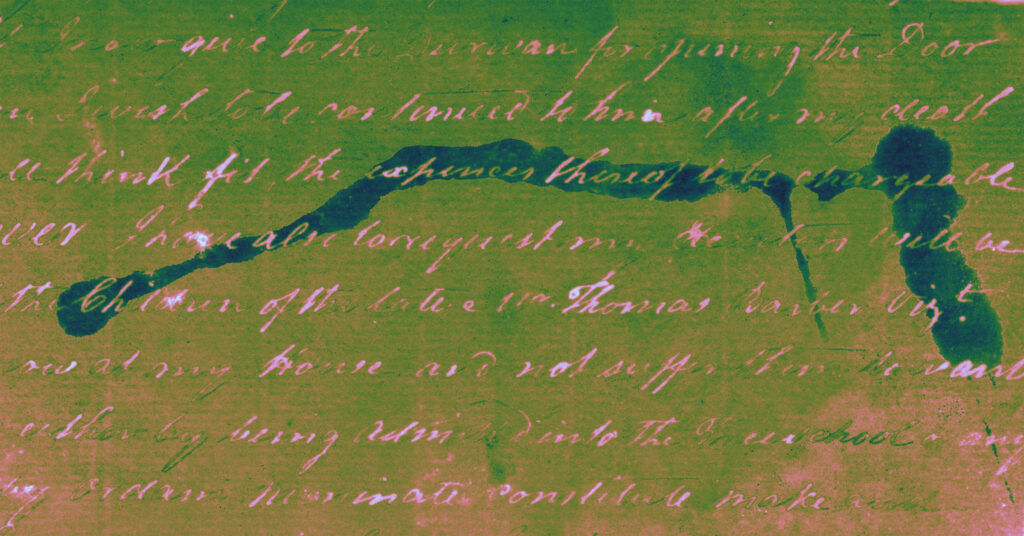 give to the Durwan for opening the Door
I wish to be continued to him after my death
think fit, the expences thereof to be chargeable
I have also to request my will be
the Children of the late Mr. Thomas Vizt.
now at my House and not suffer them be want
either by being admitted into the Free School or any
nominate constitute make and